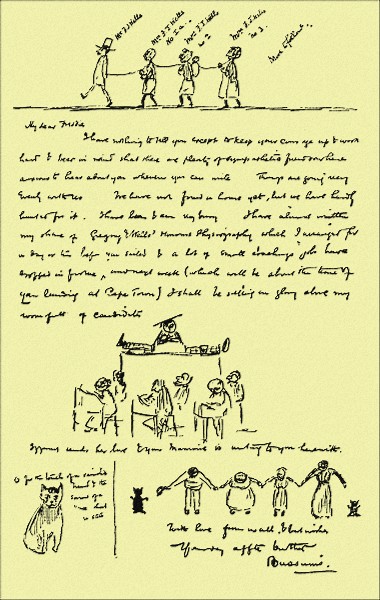 Mr F J Wells
Mrs F J Wells
No 1
No 2
No 3
My dear Freddie
I have nothing to tell you except to keep your courage up & work
hard & bear in mind that there are plenty of sympathetic friends here
anxious to hear about you whenever you can write Things are going very
evenly with us We have not found a home yet, but we have hardly
hunted for it. I have been & am very busy I have almost written
my share of Gregory & Wells' Honours Physiography which I arranged for
a day or two before you sailed & a lot of small coachings jobs have
dropped in for me, and next week (which will be about the time of
you landing at Cape Town) I shall be sitting in glory above my
room full of candidates
sends her love & your Mummie is writing to you herewith.
O for the touch of a vanished
hand & the
sound of a
that
is still
With love from us all, & best wishes
Your very affte brother
Bussums.